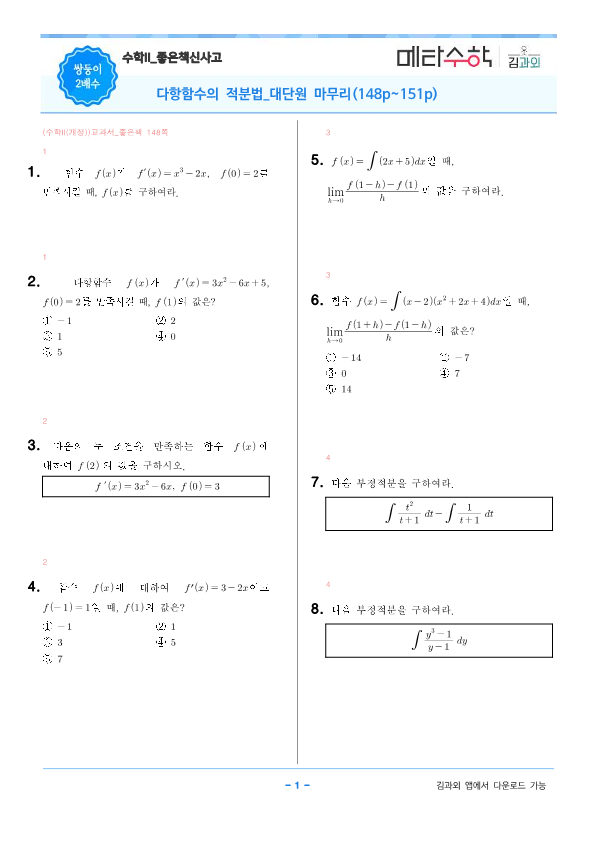 수학II_좋은책신사고
쌍둥이
2배수
메타수학
김과외
다항함수의 적분법_대단원 마무리(148p~151p)
(수학II(개정))교과서_좋은책 148쪽
1
1. 함수 f(x)가 f′(x)=x³−2x, f(0)=2를
만족시킬 때, f(x)를 구하여라.
1
2. 다항함수 f(x)가 f′(x)=3x²−6x+5,
f(0)=2를 만족시킬 때, f(1)의 값은?
① −1 ② 2
③ 1 ④ 0
⑤ 5
2
3. 다음의 두 조건을 만족하는 함수 f(x)에
대하여 f(2)의 값을 구하시오.
f′(x)=3x²−6x, f(0)=3
2
4. 함수 f(x)에 대하여 f′(x)=3−2x이고
f(−1)=1일 때, f(1)의 값은?
① −1 ② 1
③ 3 ④ 5
⑤ 7
3
5. f(x)=∫(2x+5)dx일 때,
lim h→0 {f(1−h)−f(1)}/h 의 값을 구하여라.
3
6. 함수 f(x)=∫(x−2)(x²+2x+4)dx일 때,
lim h→0 {f(1+h)−f(1−h)}/h 의 값은?
① −14 ② −7
③ 0 ④ 7
⑤ 14
4
7. 다음 부정적분을 구하여라.
∫ t²/(t+1) dt − ∫ 1/(t+1) dt
4
8. 다음 부정적분을 구하여라.
∫ (y³−1)/(y−1) dy
- 1 -
김과외 앱에서 다운로드 가능